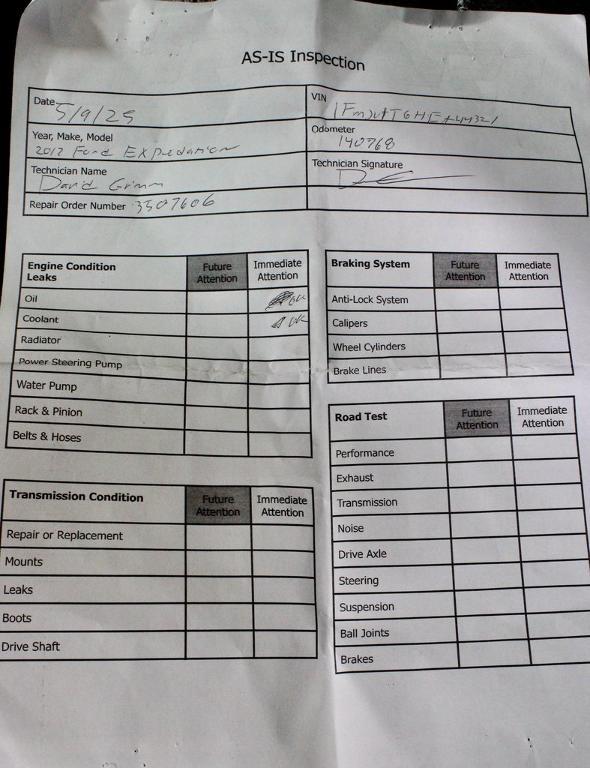 AS-IS Inspection
Date 5/9/25
VIN
Year, Make, Model
2017 Ford Expedation
Odometer
140768
Technician Name
David Grimm
Technician Signature
Repair Order Number 3507606
Engine Condition Leaks Future Attention Immediate Attention
Oil OK
Coolant OK
Radiator
Power Steering Pump
Water Pump
Rack & Pinion
Belts & Hoses
Braking System Future Attention Immediate Attention
Anti-Lock System
Calipers
Wheel Cylinders
Brake Lines
Transmission Condition Future Attention Immediate Attention
Repair or Replacement
Mounts
Leaks
Boots
Drive Shaft
Road Test Future Attention Immediate Attention
Performance
Exhaust
Transmission
Noise
Drive Axle
Steering
Suspension
Ball Joints
Brakes